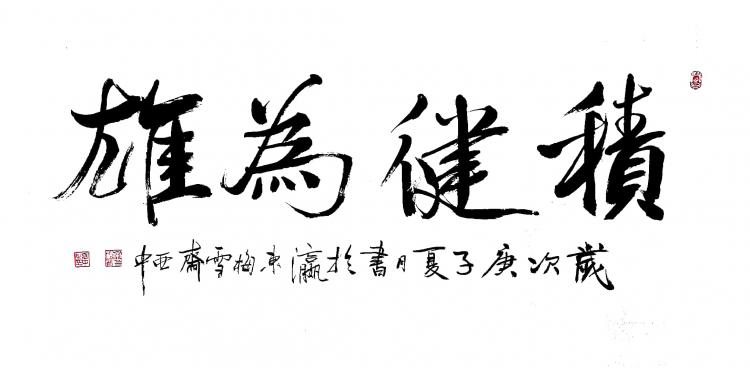 積健為雄
歲次庚子夏月書於瀛東梅雪齋亚中